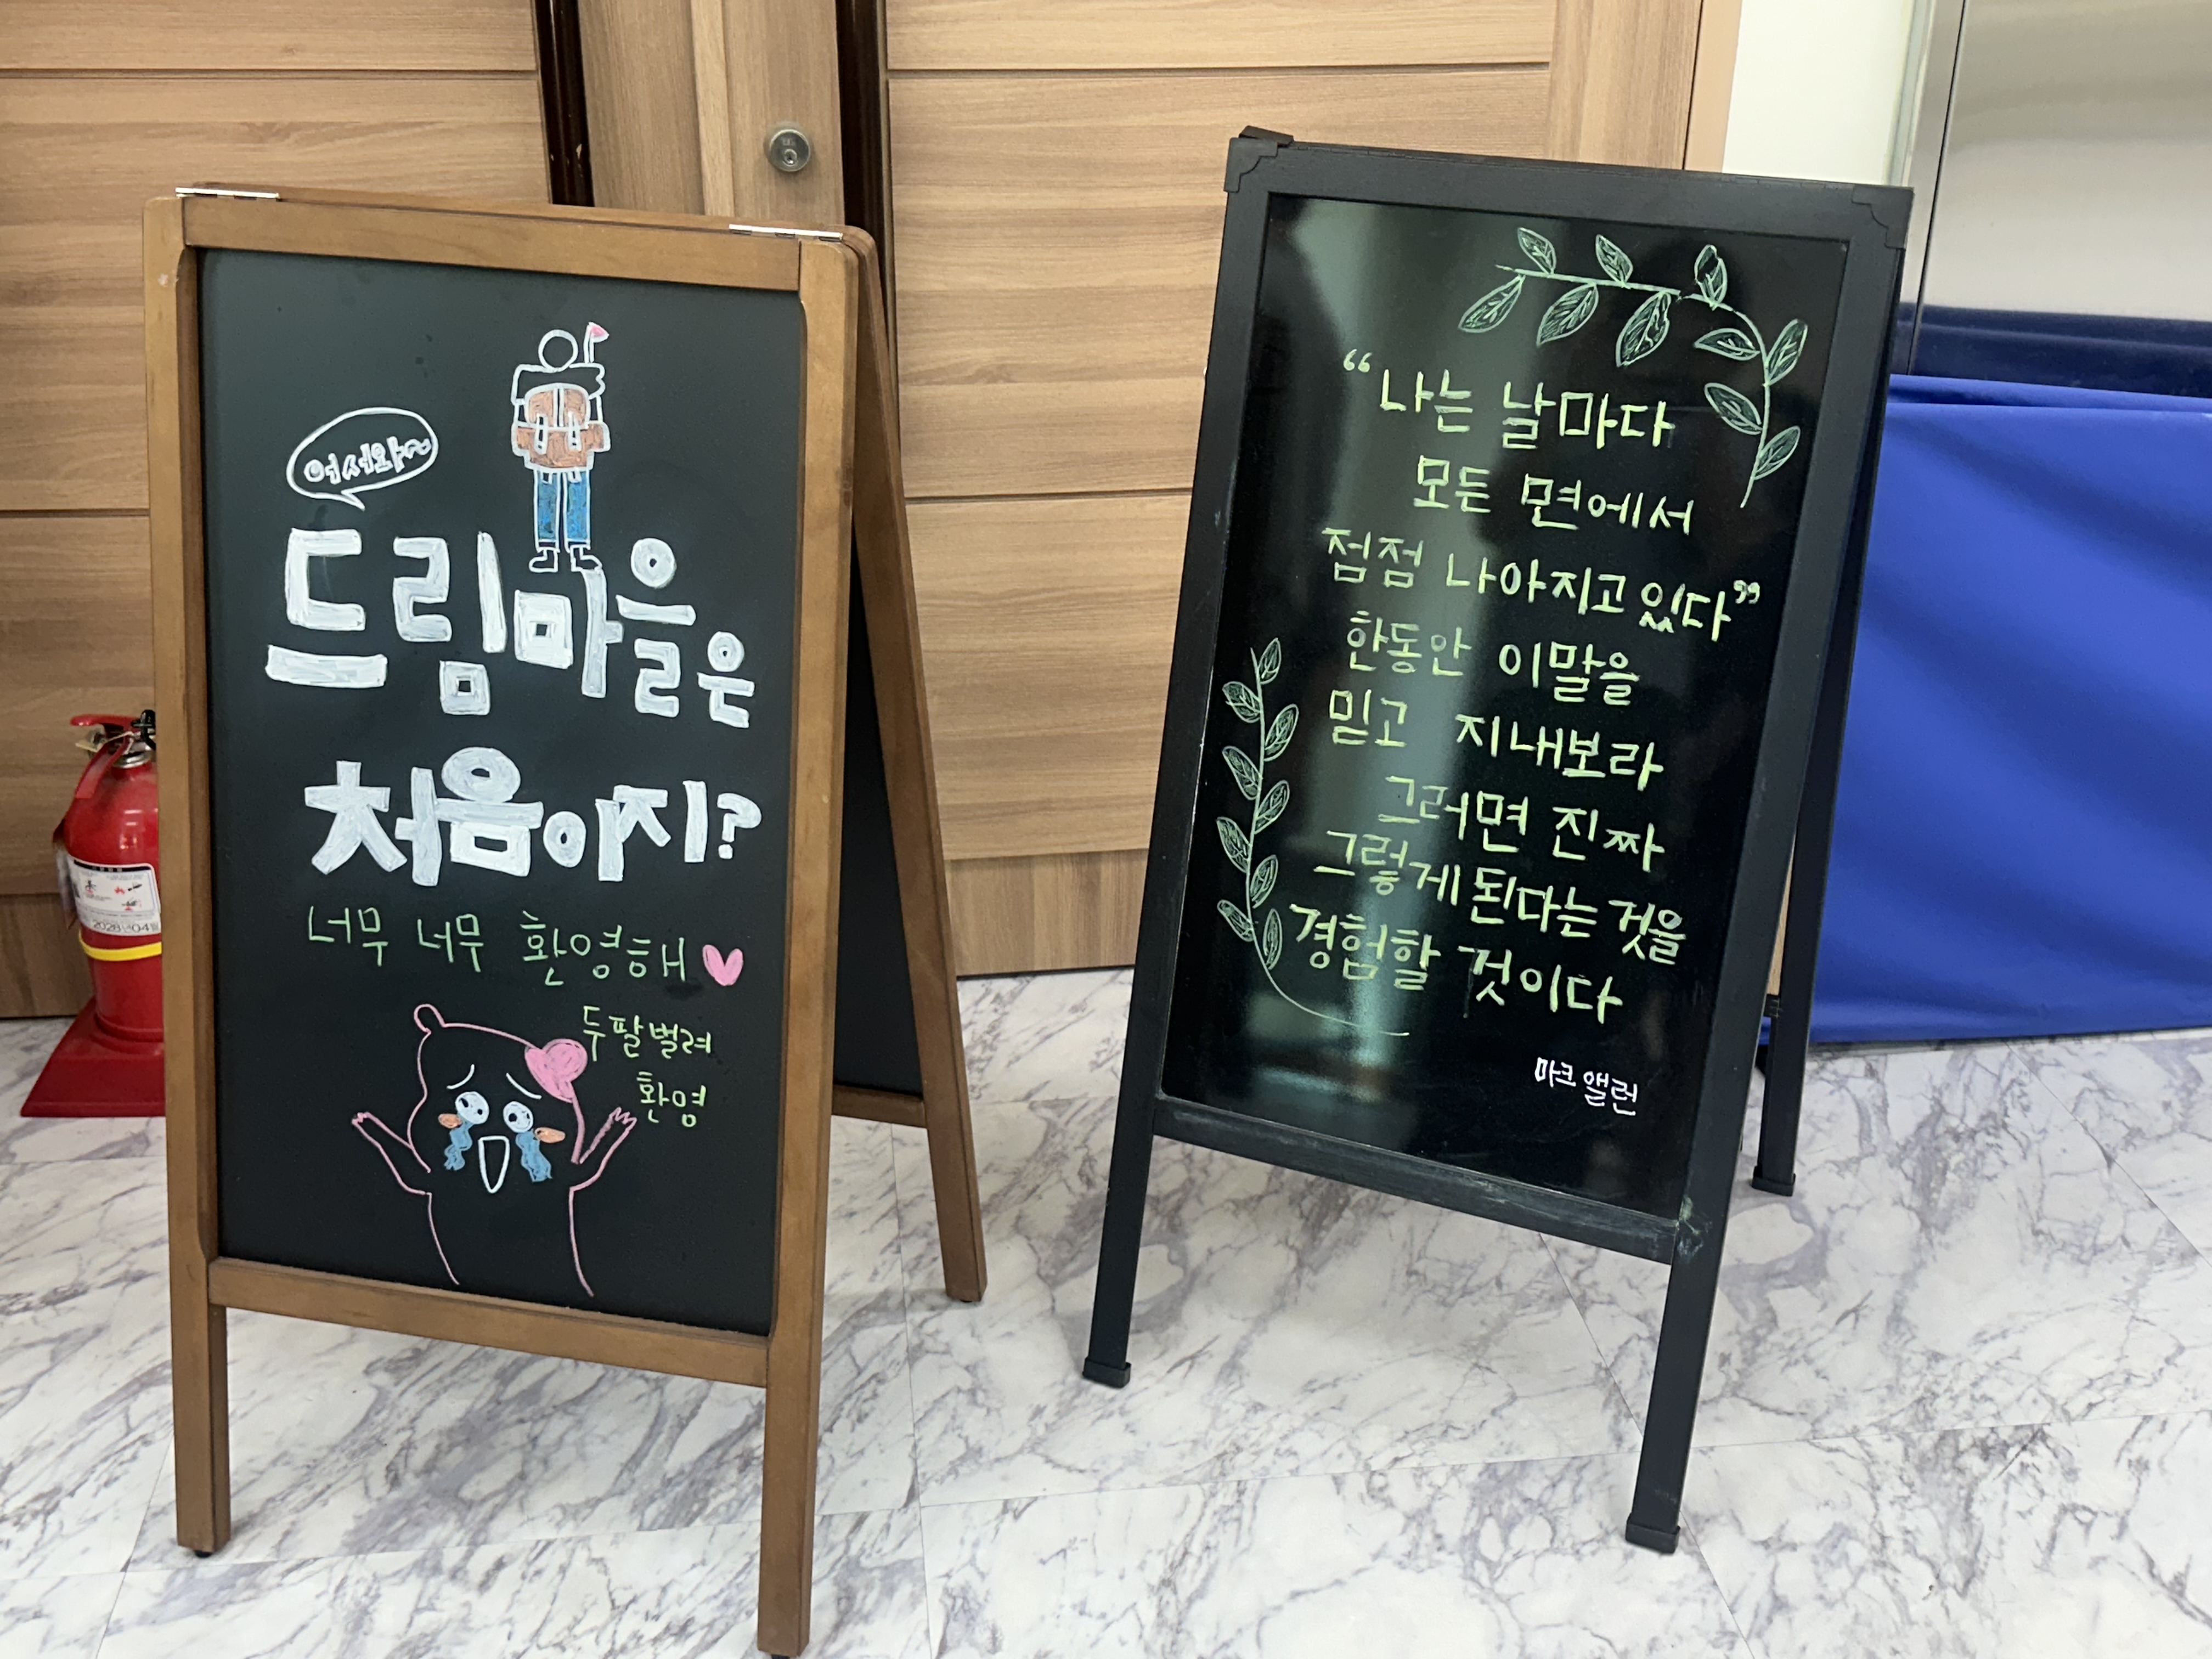 어서와~
드림마을은
처음이지?
너무 너무 환영해
두팔벌려
환영
“나는 날마다
모든 면에서
점점 나아지고 있다”
한동안 이말을
믿고 지내보라
그러면 진짜
그렇게 된다는 것을
경험할 것이다
마크 앨런